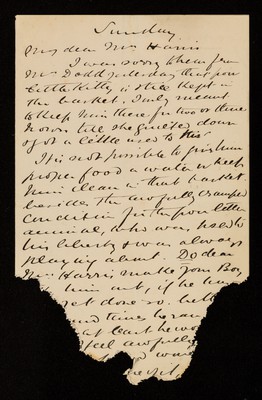 Sunday
My dear Mrs Harris
I was sorry to hear from
Mrs Dodd yesterday that your
little Kitty is still kept in
the basket. I only meant
to keep him there for two or three
hours till he quieted down
& got a little used to
It is not possible to give him
proper food & water or keep
him clean in that basket
besides the awfully cramped
condition for the poor little
animal, who was used to
his liberty & was always
playing about. Do dear
Mrs Harris make your Boy
him out, if he has
not done so.
times he ran
at least he wo
feel awfully